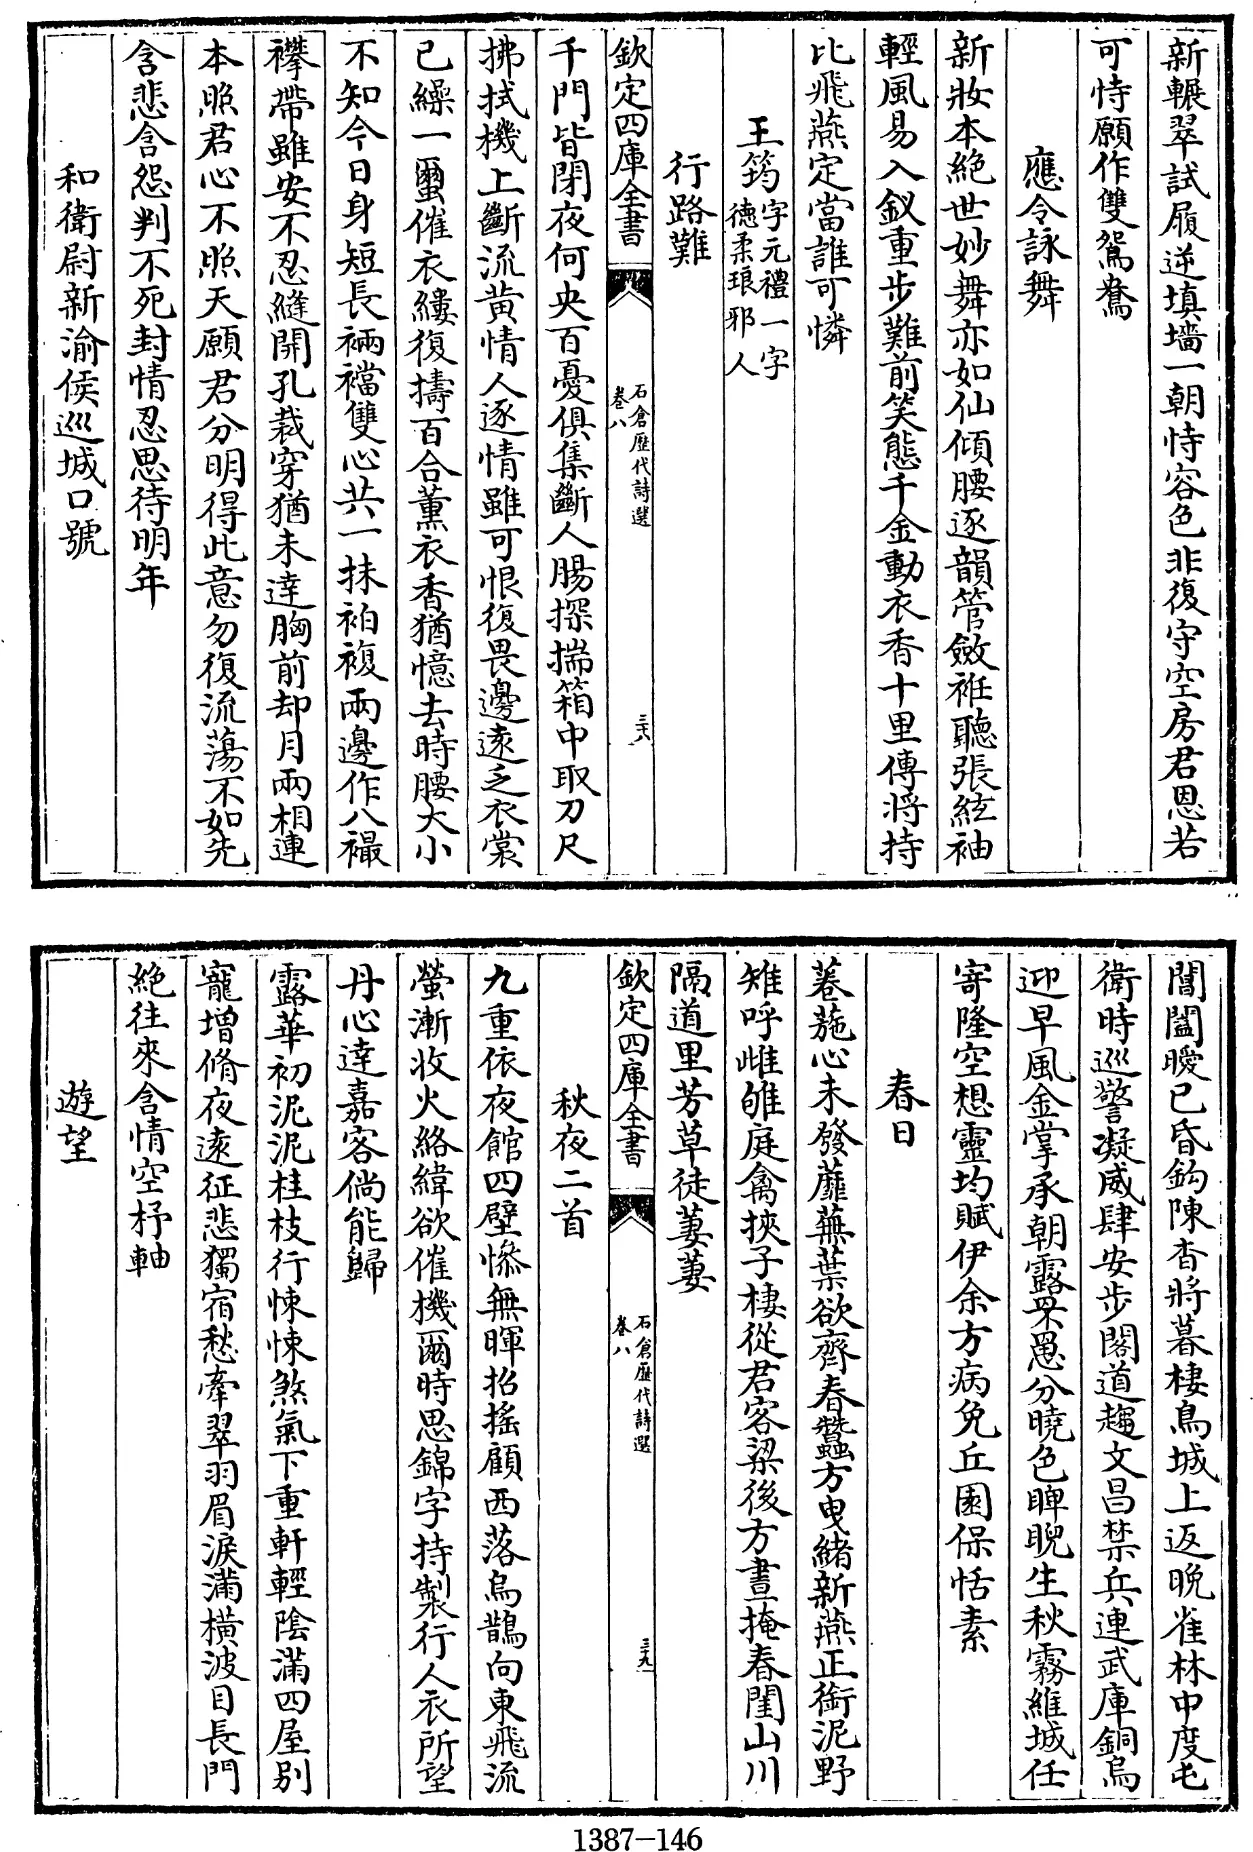 新輾翠試履逆填墻一朝恃容色非復守空房君恩若
可恃願作雙鴛鴦
應令詠舞
新妝本絶世妙舞亦如仙傾腰逐韻管斂袵聽張絃袖
輕風易入釵重步難前笑態千金動衣香十里傳將持
比飛燕定當誰可憐
王筠字元禮一字
德柔琅邪人
行路難
欽定四庫全書
石倉歷代詩選
卷八
三十八
千門皆閉夜何央百憂俱集斷人腸探揣箱中取刀尺
拂拭機上斷流黃情人逐情雖可恨復畏邊遠乏衣裳
已繰一蠒催衣縷復擣百合薰衣香猶憶去時腰大小
不知今日身短長裲襠雙心共一抹袙複兩邊作八襊
襻帶雖安不忍縫開孔裁穿猶未逹胸前却月兩相連
本照君心不照天願君分明得此意勿復流蕩不如先
含悲含怨判不死封情忍思待明年
和衛尉新渝侯巡城口號
閶闔曖已昏鈎陳杳將暮棲鳥城上返晚雀林中度屯
衛時巡警凝威肆安步閣道趨文昌禁兵連武庫銅烏
迎早風金掌承朝露罘罳分曉色睥睨生秋霧維城任
寄隆空想靈均賦伊余方病免丘園保恬素
春日
菤葹心未發蘼蕪葉欲齊春蠶方曳緒新燕正銜泥野
雉呼雌雊庭禽挾子棲從君客梁後方晝掩春閨山川
隔道里芳草徒萋萋
欽定四庫全書
石倉歷代詩選
卷八
三十九
秋夜二首
九重依夜館四壁慘無暉招搖顧西落烏鵲向東飛流
螢漸收火絡緯欲催機爾時思錦字持製行人衣所望
丹心逹嘉客倘能歸
露華初泥泥桂枝行悚悚煞氣下重軒輕陰滿四屋别
寵增脩夜遠征悲獨宿愁牽翠羽眉淚滿横波目長門
絶往來含情空杼軸
遊望
1387-146